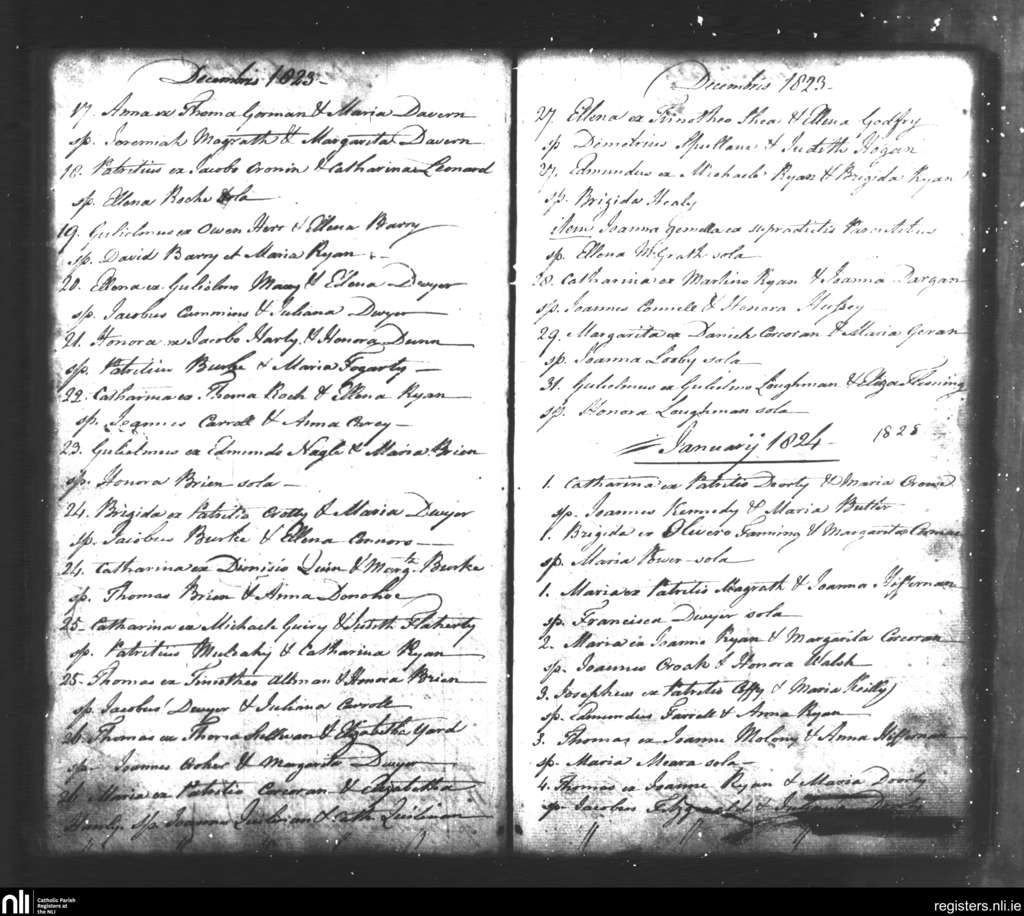 Decembris 1823
17. Anna ex Thoma Gorman & Maria Davern
sp. Jeremiah Magrath & Margarita Davern
18. Patritius ex Jacobo Cronin & Catharina Leonard
sp. Ellena Roche sola
19. Gulielmus ex Owen Herr & Ellena Barry
sp. David Barry et Maria Ryan
20. Ellena ex Gulielmo & Elena Dwyer
sp. Jacobus Cummins & Juliana Dwyer
21. Honora ex Jacobo Harty & Honora Dunn
sp. Patritius Burke & Maria Fogarty
22. Catharina ex Thoma Roch & Ellena Ryan
sp. Joannes Carroll & Anna Carey
23. Gulielmus ex Edmundo Nagle & Maria Brien
sp. Honora Brien sola
24. Brigida ex Patritio Crotty & Maria Dwyer
sp. Jacobus Burke & Ellena Connors
24. Catharina ex Dionisio Quin & Margta. Burke
sp. Thomas Brien & Anna Donohoe
25. Catharina ex Michaele Guiry & Judith Flaherty
sp. Patritius Mulcahy & Catharina Ryan
25. Thomas ex Timotheo Altman & Honora Brien
sp. Jacobus Dwyer & Juliana Carroll
26. Thomas ex Thoma & Elizabetha Yard
sp. Joannes & Margarita Dwyer
26. Maria ex Patritio Corcoran & Elizabetha
Hanly. sp. Joannes Quirlivan & Cath. Quilinan
Decembris 1823
27. Ellena ex Timotheo Shea & Ellena Godfry
sp. Demetrius Spullane & Judith Hogan
27. Edmundus ex Michaele Ryan & Brigida Ryan
sp. Brigida Healy
Item Joanna Gemella ex supradictis Parentibus
sp. Ellena McGrath sola
28. Catharina ex Martino Ryan & Joanna Dargan
sp. Joannes Connell & Honora Hussey
29. Margarita ex Daniele Corcoran & Maria Geran
sp. Joanna Looby sola
31. Gulielmus ex Gulielmo Loughman & Eliza Fleming
sp. Honora Loughman sola
Januarij 1824 1828
1. Catharina ex Patritio Doorly & Maria Crowe
sp. Joannes Kennedy & Maria Butler
1. Brigida ex Olivero Fanning & Margarita
sp. Maria Power sola
1. Maria ex Patritio Magrath & Joanna Heffernan
sp. Francisca Dwyer sola
2. Maria ex Joanne Ryan & Margarita Corcoran
sp. Joannes Croak & Honora Walsh
3. Josephus ex Patritio & Maria Reilly
sp. Edmundus Farrell & Anna Ryan
3. Thomas ex Joanne Molony & Anna Heffernan
sp. Maria Meara sola
4. Thomas ex Joanne Ryan & Maria Doorly
sp. Jacobus Fitzgerald & Doorly
nli Catholic Parish
Registers at
the NLI
registers.nli.ie